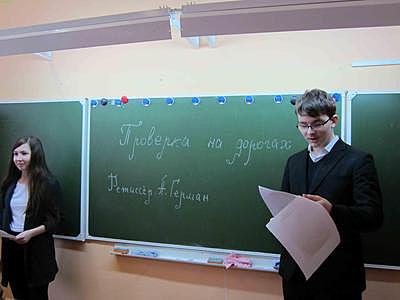 Проверка на дорогах
Режиссёр А. Герман